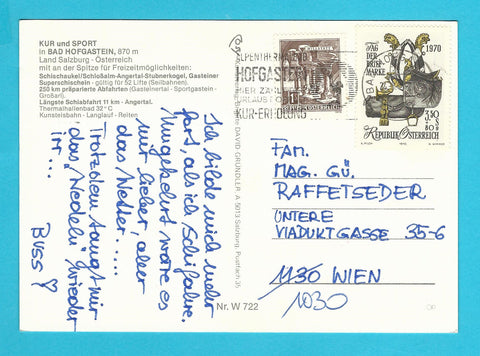 KUR und SPORT
in BAD HOFGASTEIN, 870 m
Land Salzburg - Österreich
mit an der Spitze für Freizeitmöglichkeiten:
Schischaukel/Schloßalm-Angertal-Stubnerkogel, Gasteiner
Superschischein - gültig für 52 Lifte (Seilbahnen).
250 km präparierte Abfahrten (Gasteinertal - Sportgastein -
Großarl).
Längste Schiabfahrt 11 km - Angertal.
Thermalhallenbad 32° C
Kunsteisbahn - Langlauf - Reiten
Ich bilde mich mehr
fort, als ich Schifahre.
Umgekehrt wäre es
mir lieber, aber
das Wetter.....
Trotzdem taugt mir
das "Wedeln" wieder
irr...
BUSSI ♡
Nr. W 722
DAVID GRÜNDLER A 5013 Salzburg, Postfach 35
HOFGASTEIN
KUR-ERHOLUNG
TAG DER BRIEFMARKE
1970
3.50
+80g
REPUBLIK ÖSTERREICH
FAM.
MAG. GÜ.
RAFFETSEDER
UNTERE
VIADUKTGASSE 35-6
1130 WIEN
1030